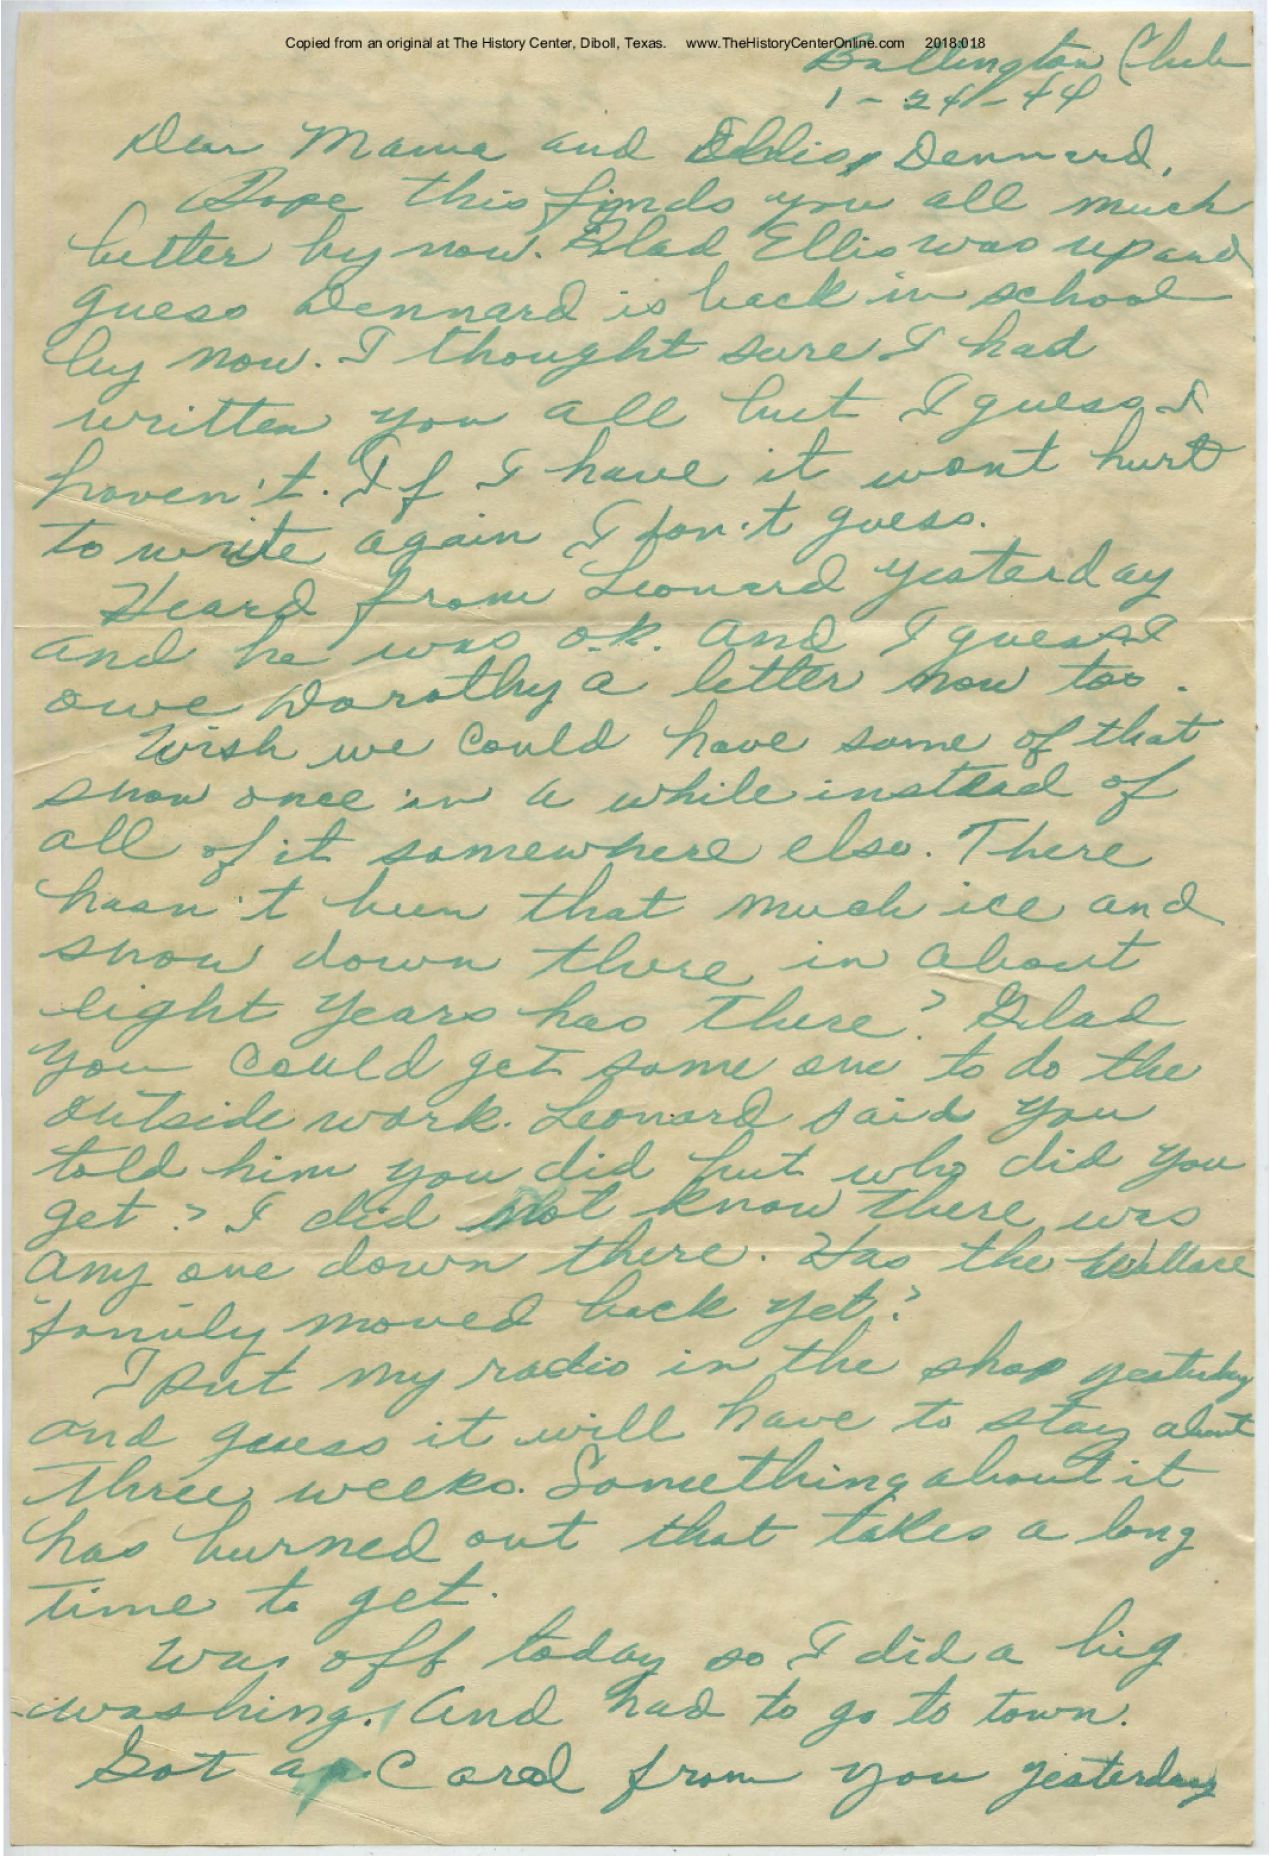 Copied from an original at The History Center, Diboll, Texas. www.TheHistoryCenterOnline.com 2018:018
Ballington Club
1-24-44
Dear Mama and Ellis, Dennard,
Hope this finds you all much
better by now. Glad Ellis was up and
guess Dennard is back in school
by now. I thought sure I had
written you all but I guess I
haven't. If I have it wont hurt
to write again I don't guess.
Heard from Leonard yesterday
and he was o.k. and I guess I
owe Dorothy a letter now too.
Wish we could have some of that
snow once in a while instead of
all of it somewhere else. There
hasn't been that much ice and
snow down there in about
eight years has there? Glad
you could get some one to do the
outside work. Leonard said you
told him you did but who did you
get? I did not know there was
any one down there. Has the Wallace
family moved back yet?
I put my radio in the shop yesterday
and guess it will have to stay about
three weeks. Something about it
has burned out that takes a long
time to get.
Was off today so I did a big
washing. And had to go to town.
Got a p.Card from you yesterday